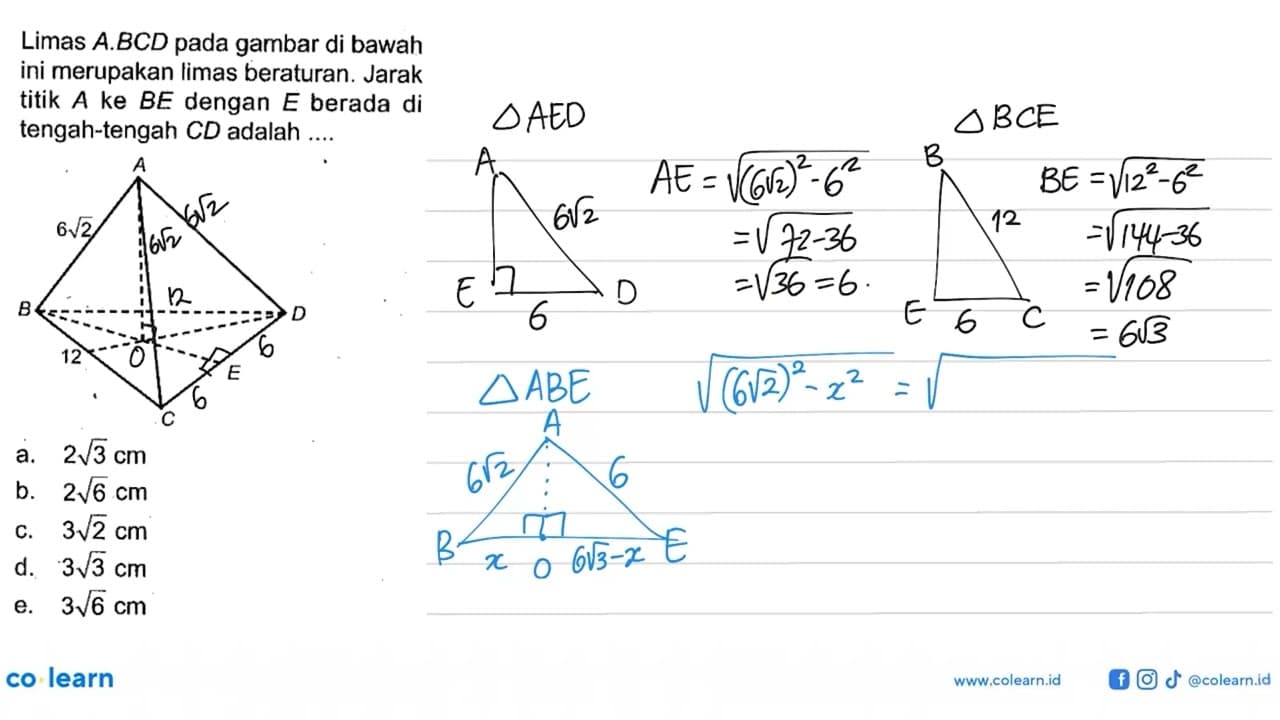 Limas A.BCD pada gambar di bawah
ini merupakan limas beraturan. Jarak
titik A ke BE dengan E berada di
tengah-tengah CD adalah ....
A
6√2
6√2
6√2
B
12
D
12
O
6
E
6
C
a. 2√3 cm
b. 2√6 cm
c. 3√2 cm
d. 3√3 cm
e. 3√6 cm
△AED
A
6√2
E
6
D
AE = √(6√2)² - 6²
= √72-36
= √36 = 6.
△BCE
B
12
E
6
C
BE = √12² - 6²
= √144-36
= √108
= 6√3
△ABE
A
6√2
6
B
x
O
6√3-x
E
√(6√2)² - x² = √
co learn
www.colearn.id
@colearn.id